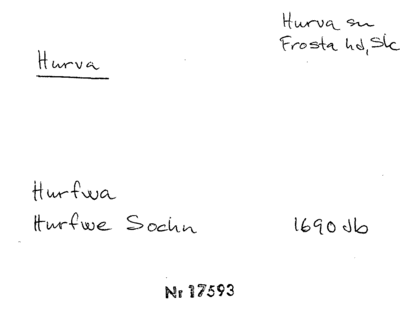 Hurva sn
Frosta hd, Sk
Hurva
Hurfwa
Hurfwe Sochn 1690 Jb
Nr 17593